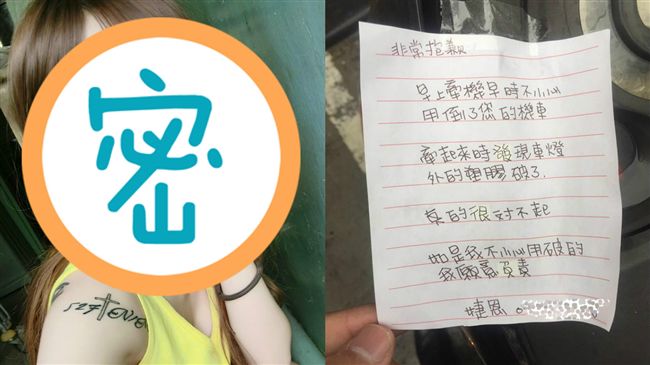 密
非常抱歉
早上牽機車時不小心
用倒了您的機車
牽起來時發現車燈
外的塑膠破了.
真的很对不起
如是我不小心用破的
我願意負責
婕恩